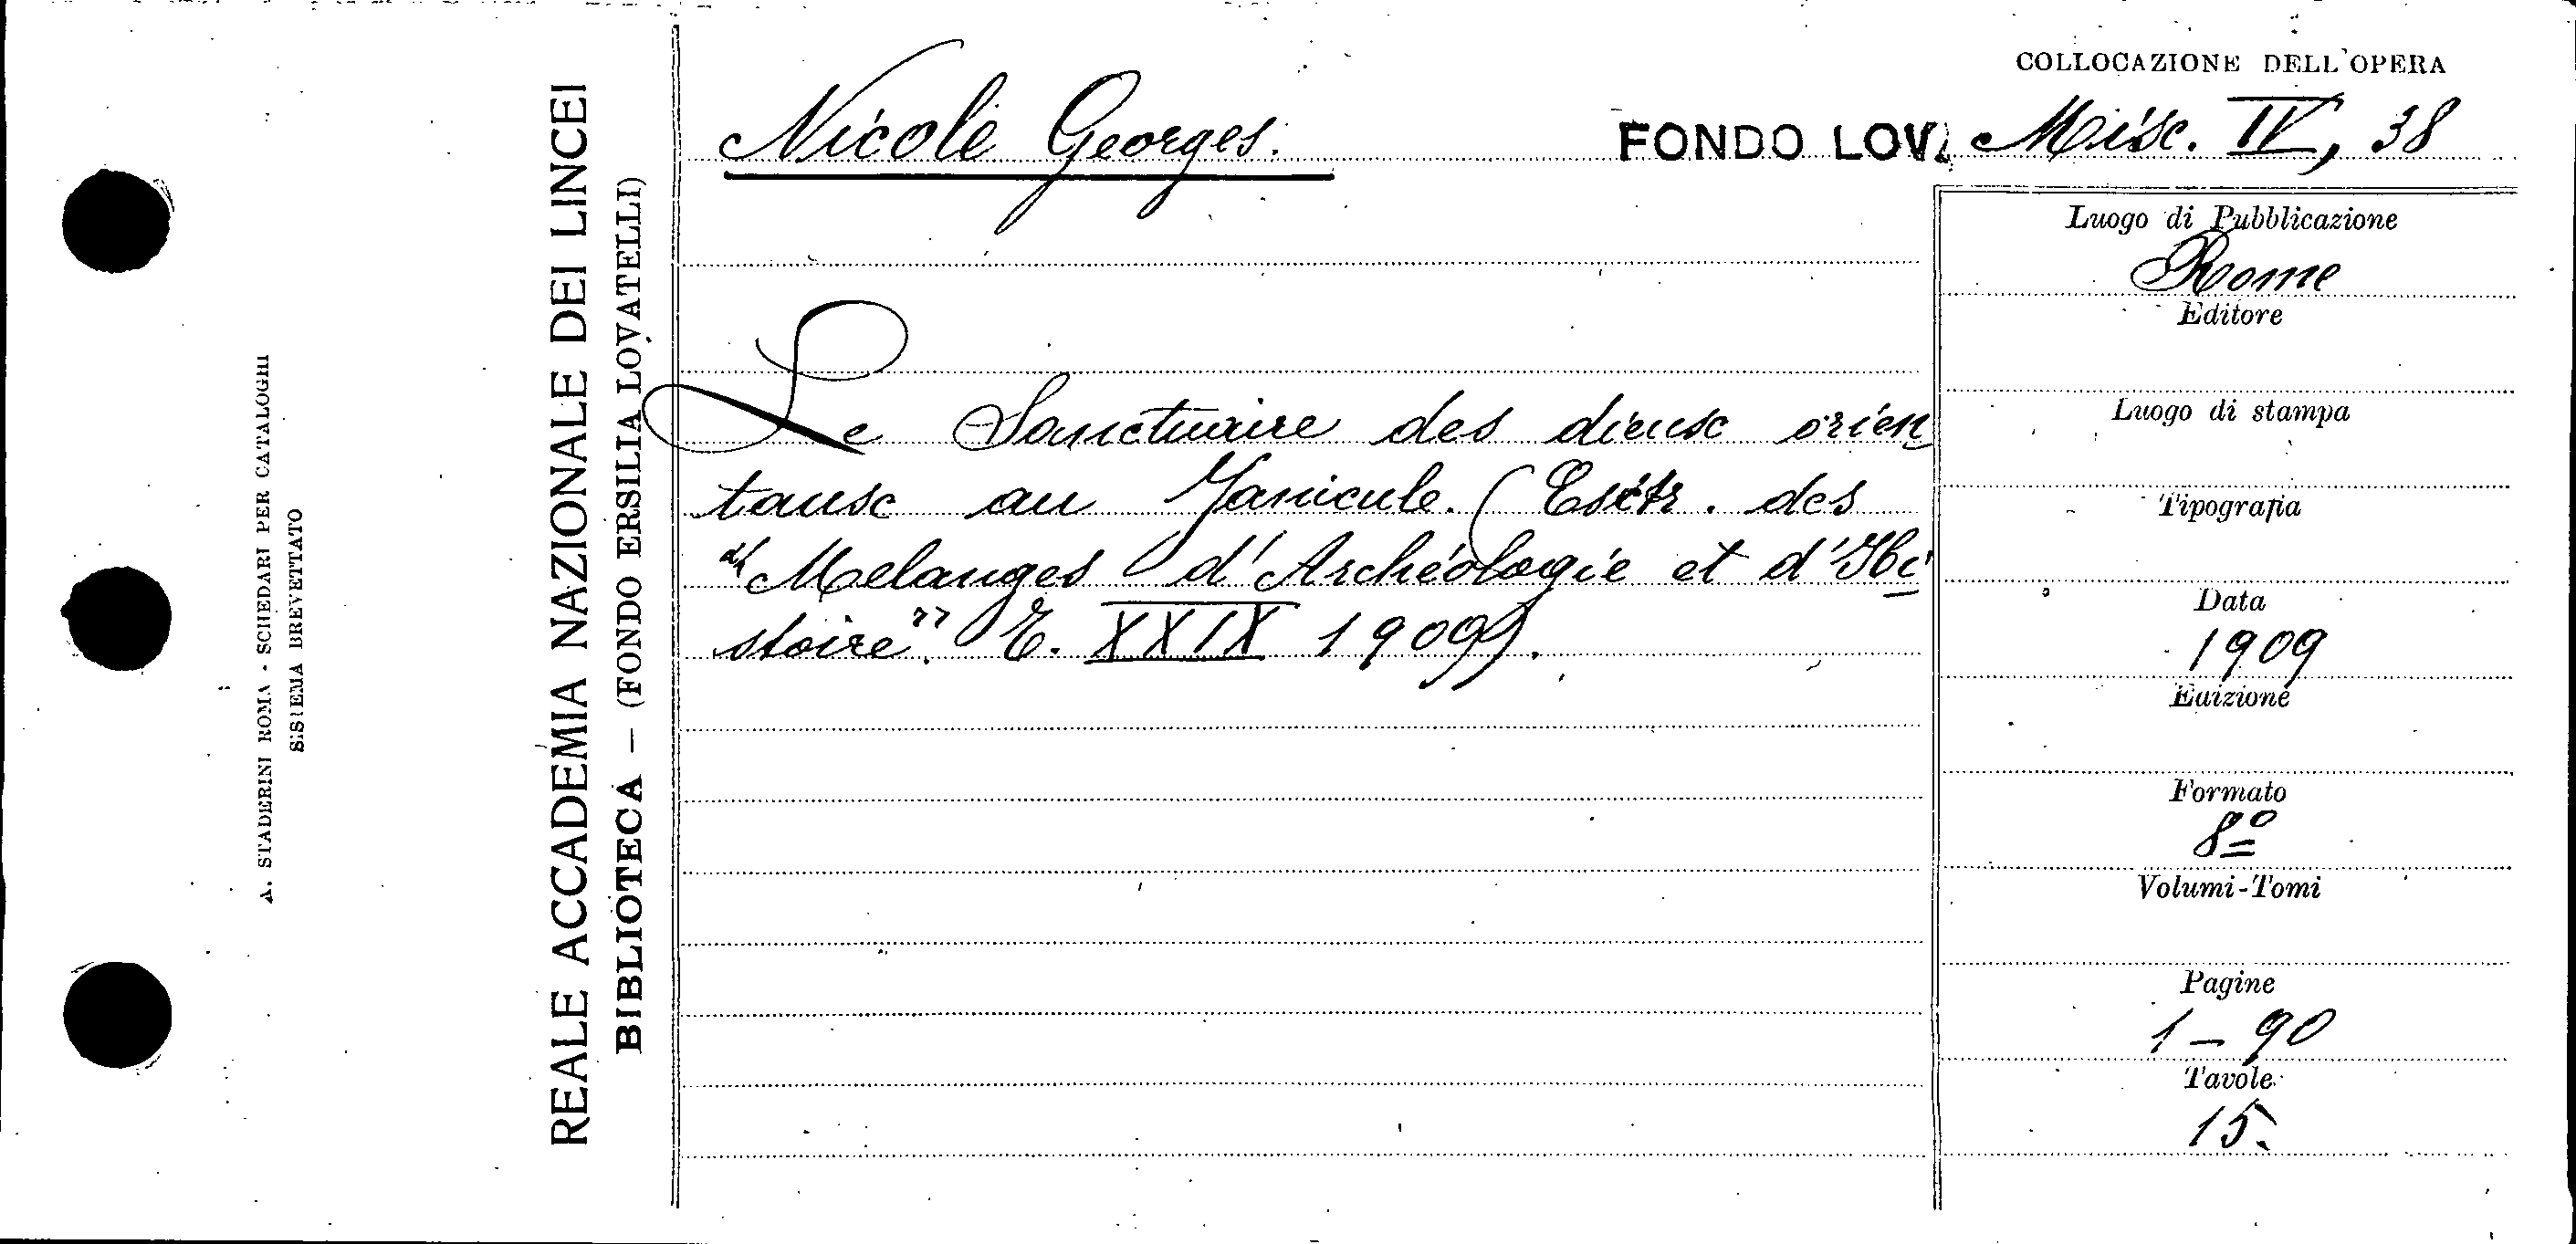 COLLOCAZIONE DELL'OPERA
Nicole Georges.
FONDO LOV. Misc. IV, 38
Le Sanctuaire des dieux orien
taux au Janicule. (Extr. des
"Melanges d'Archéologie et d'Hi
stoire". T. XXIX 1909).
Luogo di Pubblicazione
Rome
Editore
Luogo di stampa
Tipografia
Data
1909
Edizione
Formato
8º
Volumi-Tomi
Pagine
1-90
Tavole
15.
REALE ACCADEMIA NAZIONALE DEI LINCEI
BIBLIOTECA — (FONDO ERSILIA LOVATELLI)
A. STADERINI ROMA - SCHEDARI PER CATALOGHI
SISTEMA BREVETTATO